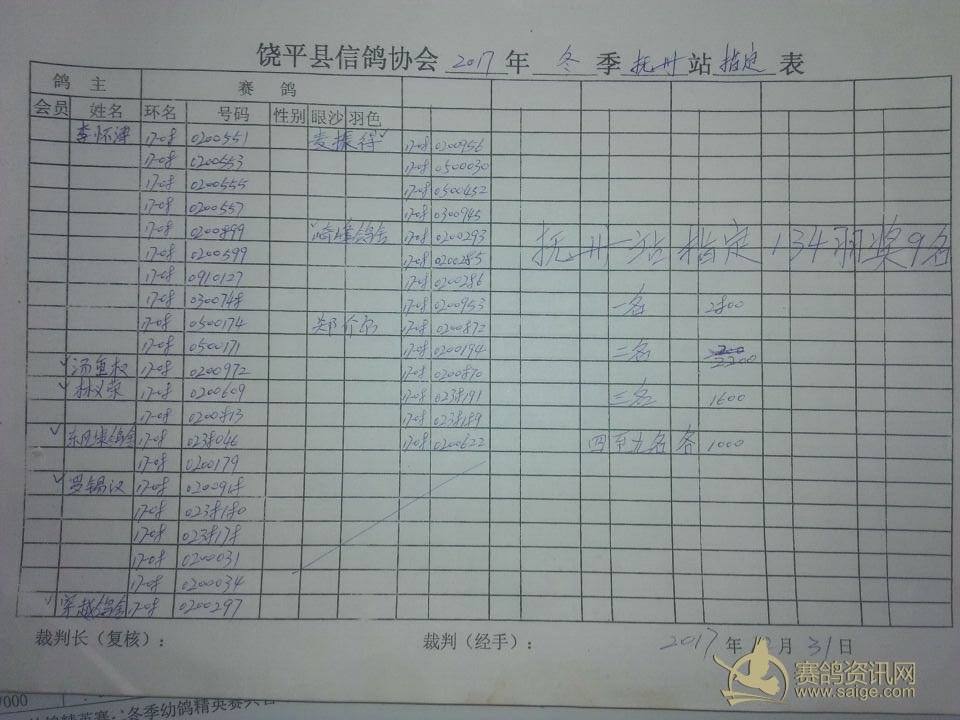 饶平县信鸽协会 2017 年 冬 季 抚州 站 指定 表
鸽 主 赛 鸽
会员 姓名 环名 号码 性别 眼沙 羽色
李怀津 17-08 0200551 麦振得 17-08 0200956
17-08 0200553 17-08 0500030
17-08 0200555 17-08 0500452
17-08 0200557 17-08 0300945
17-08 0200899 鸽舍 17-08 0200293
17-08 0200599 17-08 0200285
抚州一站指定134羽奖9名
17-08 0910127 17-08 0200286
17-08 0300748 17-08 0200953 一名 2800
17-08 0500174 郑介 17-08 0200872
17-08 0500171 17-08 0200194 二名 2200
汤重权 17-08 0200972 17-08 0200870
林义荣 17-08 0200609 17-08 0238191 三名 1600
17-08 0200813 17-08 0238189
鸽舍 17-08 0238046 17-08 0200622 四至九名各 1000
17-08 0200179
罗锡汉 17-08 0200918
17-08 0238180
17-08 0238178
17-08 0200031
17-08 0200034
穿越鸽舍 17-08 0200297
裁判长（复核）： 裁判（经手）： 2017 年 12 月 31 日
赛鸽资讯网
www.saige.com
/000
冬季幼鸽精英赛